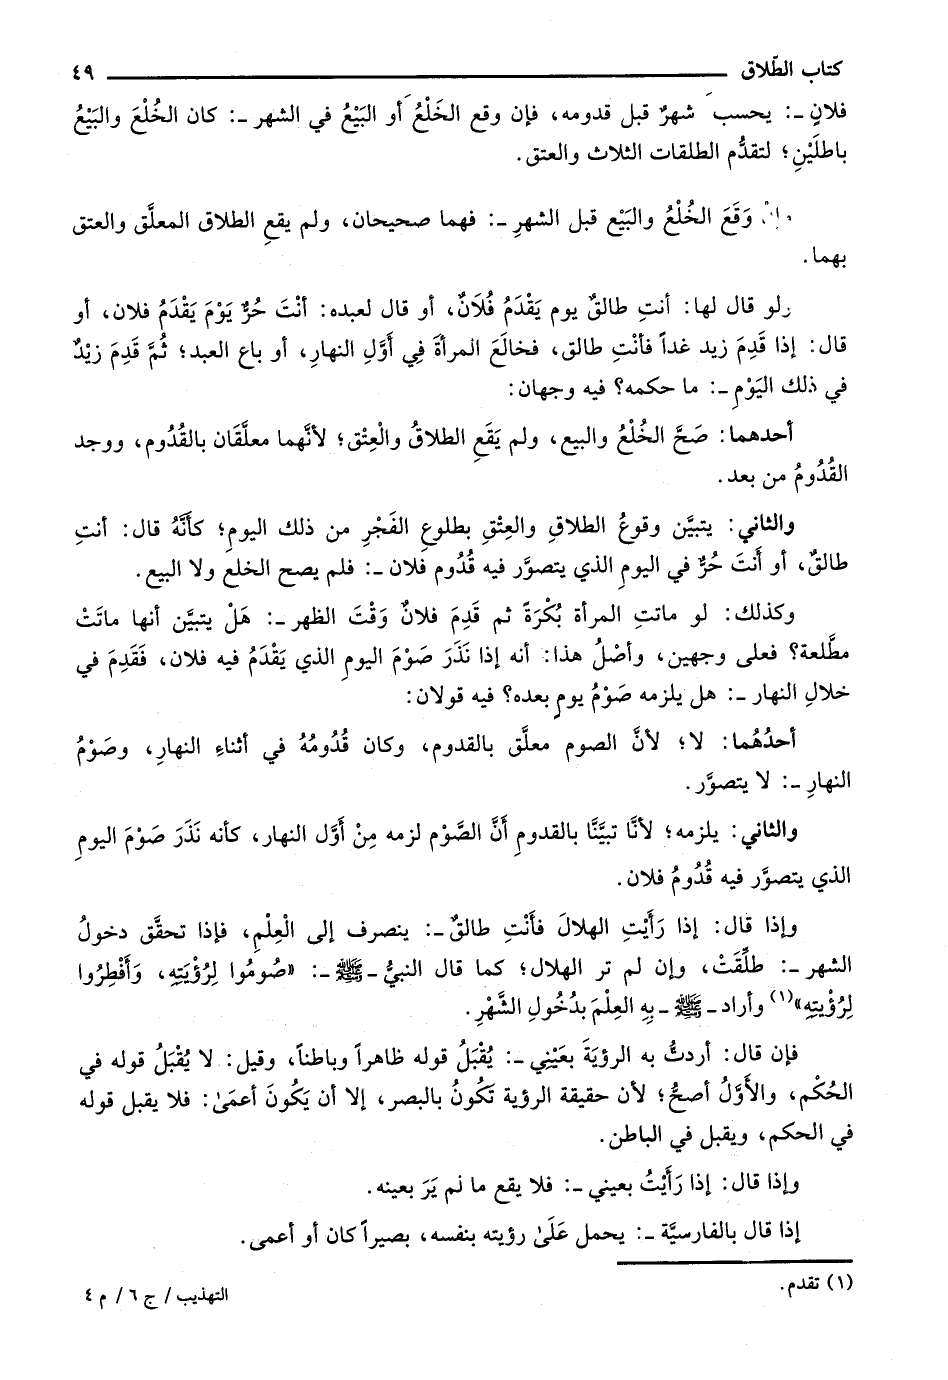 كتاب الطّلاق ٤٩
فلانٍ -: يحسب شهرٌ قبل قدومه، فإن وقع الخَلْعُ أو البَيْعُ في الشهر -: كان الخُلْعَ والبَيْعُ
باطلَيْنِ؛ لتقدُّم الطلقات الثلاث والعتق.
وإنْ وَقَعَ الخُلْعُ والبَيْع قبل الشهرِ -: فهما صحيحان، ولم يقعِ الطلاق المعلَّق والعتق
بهما.
ولو قال لها: أنتِ طالقٌ يوم يَقْدَمُ فُلَانٌ، أو قال لعبده: أنْتَ حُرٌّ يَوْمَ يَقْدَمُ فلان، أو
قال: إذا قَدِمَ زيد غداً فأنْتِ طالق، فخالَعَ المرأةَ فِي أوَّلِ النهارِ، أو باع العبد؛ ثُمَّ قَدِمَ زيْدٌ
في ذلك اليَوْمِ -: ما حكمه؟ فيه وجهان:
أحدهما: صَحَّ الخُلْعُ والبيع، ولم يَقَعِ الطلاقُ والْعِتْق؛ لأنَّهما معلَّقان بالقُدُوم، ووجد
القُدُومُ من بعد.
والثاني: يتبيَّن وقوعُ الطلاقِ والعِتْقِ بطلوعِ الفَجْرِ من ذلك اليومِ؛ كأنَّهُ قال: أنتِ
طالقٌ، أو أَنتَ حُرٌّ في اليومِ الذي يتصوَّر فيه قُدُوم فلان -: فلم يصح الخلع ولا البيع.
وكذلك: لو ماتتِ المرأة بُكْرَةً ثم قَدِمَ فلانٌ وَقْتَ الظهر -: هَلْ يتبيَّن أنها ماتَتْ
مطَّلعة؟ فعلى وجهين، وأصْلُ هذا: أنه إذا نَذَرَ صَوْمَ اليومِ الذي يَقْدَمُ فيه فلان، فَقَدِمَ في
خلالِ النهار -: هل يلزمه صَوْمُ يومٍ بعده؟ فيه قولان:
أحدُهُما: لا؛ لأنَّ الصوم معلَّق بالقدوم، وكان قُدُومُهُ في أثناءِ النهارِ، وصَوْمُ
النهارِ -: لا يتصوَّر.
والثاني: يلزمه؛ لأنَّا تبيَّنَّا بالقدومِ أنَّ الصَّوْم لزمه مِنْ أوَّل النهار، كأنه نَذَرَ صَوْمَ اليومِ
الذي يتصوَّر فيه قُدُومُ فلان.
وإذا قال: إذا رَأَيْتِ الهلالَ فأَنْتِ طالقٌ -: ينصرف إلى الْعِلْمِ، فإذا تحقَّق دخولُ
الشهر -: طلِّقَتْ، وإن لم تر الهلال؛ كما قال النبيُّ - ﷺ -: «صُومُوا لِرُؤْيَتِهِ، وَأَفْطِرُوا
لِرُؤْيتِهِ»(١) وأراد - ﷺ - بِهِ العِلْمَ بدُخُولِ الشَّهْرِ.
فإن قال: أردتُّ به الرؤيَةَ بعَيْنِي -: يُقْبَلُ قوله ظاهراً وباطناً، وقيل: لا يُقْبَلُ قوله في
الحُكْم، والأوَّلُ أصحُّ؛ لأن حقيقة الرؤية تكُونُ بالبصر، إلا أن يَكُونَ أعمَىٰ: فلا يقبل قوله
في الحكم، ويقبل في الباطن.
وإذا قال: إذا رَأَيْتُ بعيني -: فلا يقع ما لم يَرَ بعينه.
إذا قال بالفارسيَّة -: يحمل عَلَىٰ رؤيته بنفسه، بصيراً كان أو أعمى.
(١) تقدم.
التهذيب / ج ٦ / م ٤